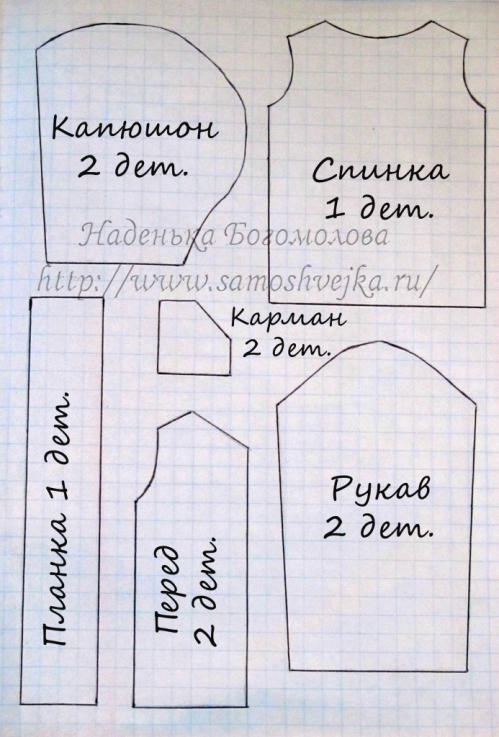 Капюшон
2 дет.
Спинка
1 дет.
Наденька Богомолова
http://www.samoshvejka.ru/
Карман
2 дет.
Планка 1 дет.
Перед
2 дет.
Рукав
2 дет.